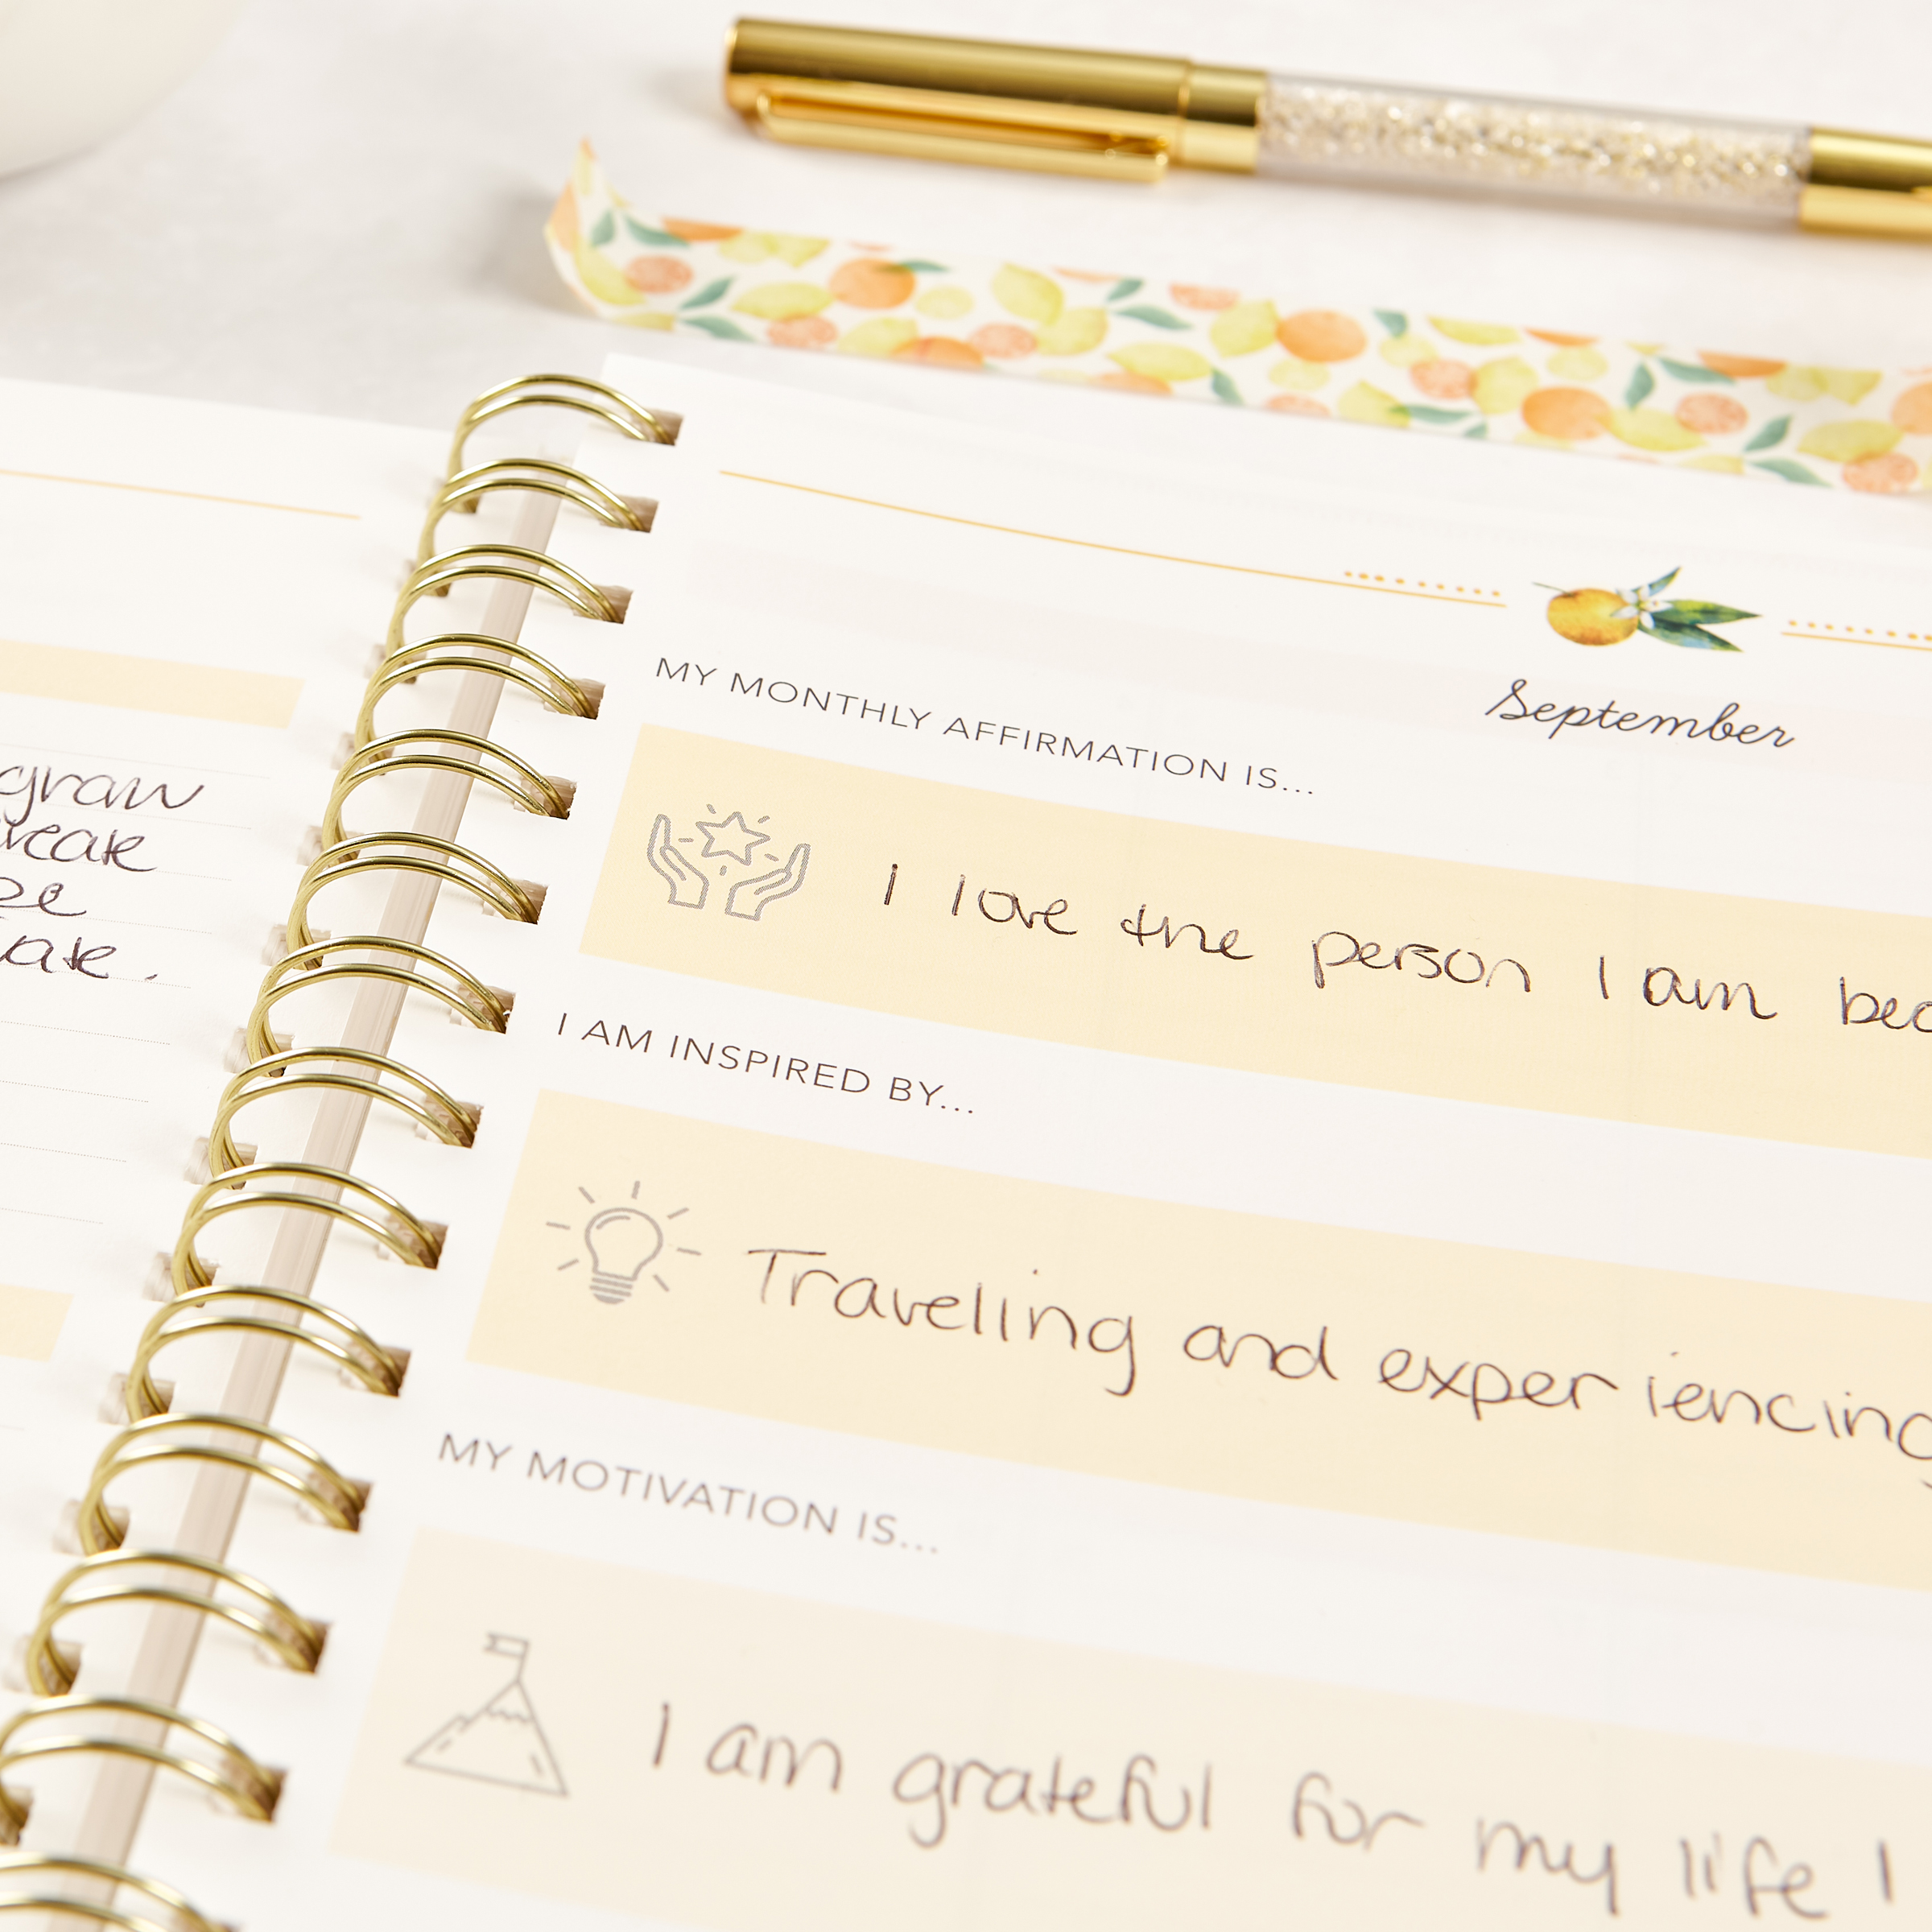 graw
ate.
September
MY MONTHLY AFFIRMATION IS...
I love the person I am bec
I AM INSPIRED BY...
Traveling and experiencing
MY MOTIVATION IS...
I am grateful for my life I